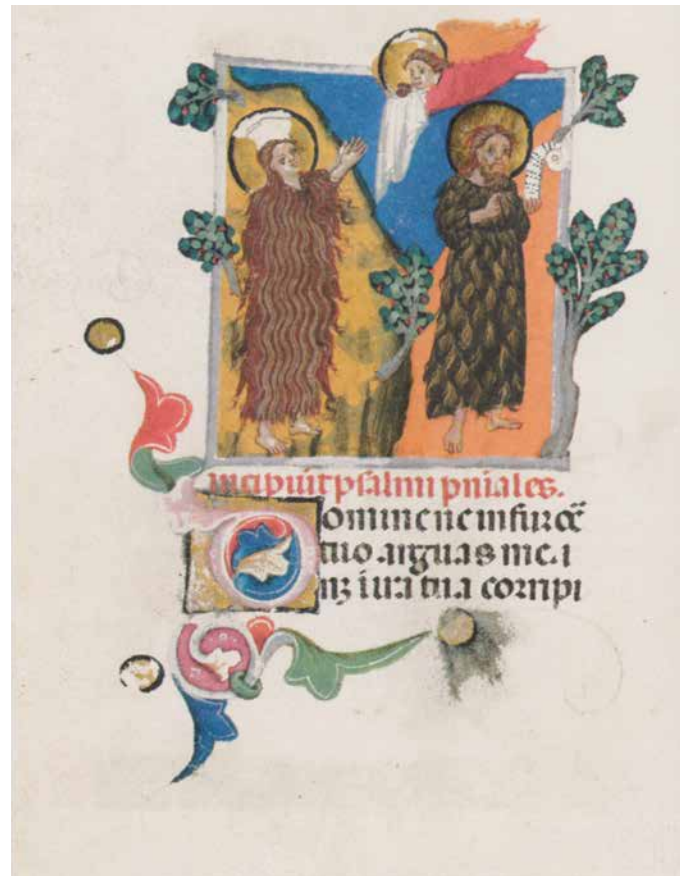 incipiut psalmi pniales.
Domine ne in furoē
tuo arguas me. i
nz ira tua corripi